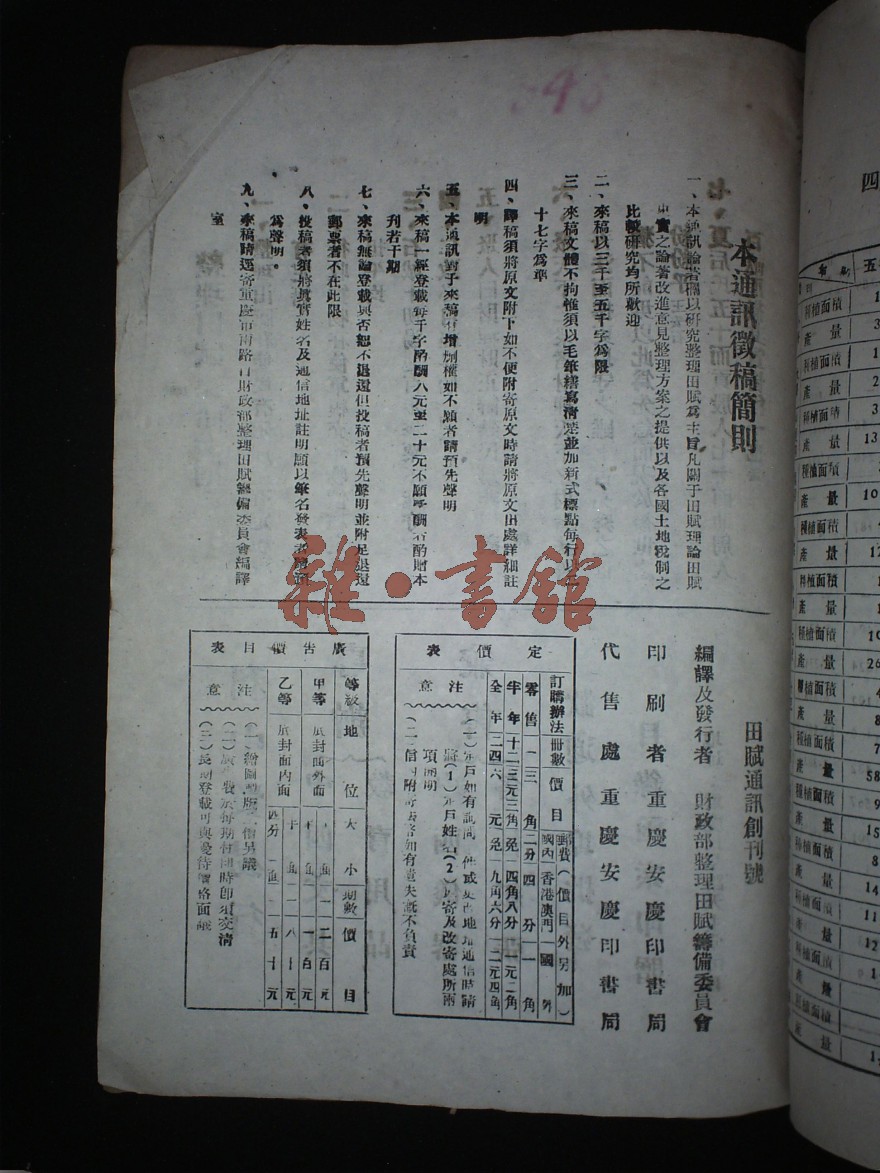 本通訊徵稿簡則
一、本通訊論著欄以研究整理田賦為主旨凡關于田賦理論田賦
史實之論著改進意見整理方案之提供以及各國土地稅制之
比較研究均所歡迎
二、來稿以三千至五千字為限
三、來稿文體不拘惟須以毛筆繕寫清楚並加新式標點每行以二
十七字為準
四、譯稿須將原文附下如不便附寄原文時請將原文出處詳細註
明
五、本通訊對于來稿有增刪權如不願者請預先聲明
六、來稿一經登載每千字酌酬八元至二十元不願受酬者酌贈本
刊若干期
七、來稿無論登載與否恕不退還但投稿者預先聲明並附足退還
郵票者不在此限
八、投稿者須將眞實姓名及通信地址註明願以筆名發表者
為聲明。
九、來稿請逕寄重慶市財政部整理田賦籌備委員會編譯
室
田賦通訊創刊號
編譯及發行者 財政部整理田賦籌備委員會
印刷者 重慶安慶印書局
代售處 重慶安慶印書局
定價表
訂購辦法 冊數 價目 郵費(價目外另加)
國內 香港澳門 國外
零售 一 三角 二分 四分 一角
半年 十二 三元三角 免 四角八分 一元二角
全年 二四 六元 免 九角六分 二元四角
注意
(一)定戶如有詢問 件或更改地址通信時請
將(1)定戶姓名(2)原寄及改寄處所兩
項開明
如有遺失概不負責
廣告價目表
等級 地位 大小 期數 價目
甲等 底封面外面 二百元
一百元
乙等 底封面內面 八十元
四分 五十元
注意
(一)繪圖製版工價另議
(二)費於每期付印時即須交清
(三)長期登載可與優待價格面議
雜·書館
四
種植面積
產量